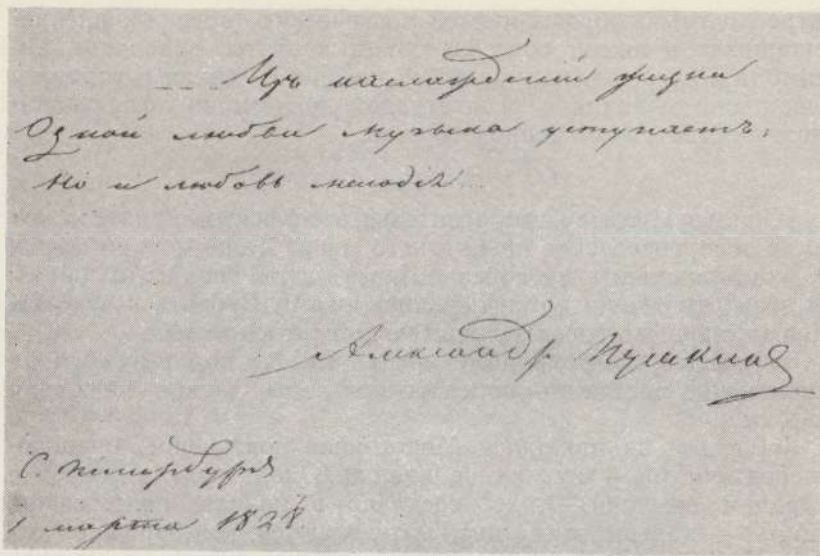 ... Изъ наслажденій жизни
Одной любви музыка уступаетъ;
Но и любовь мелодія...
Александръ Пушкинъ
С. Петербургъ
1 марта 1828.